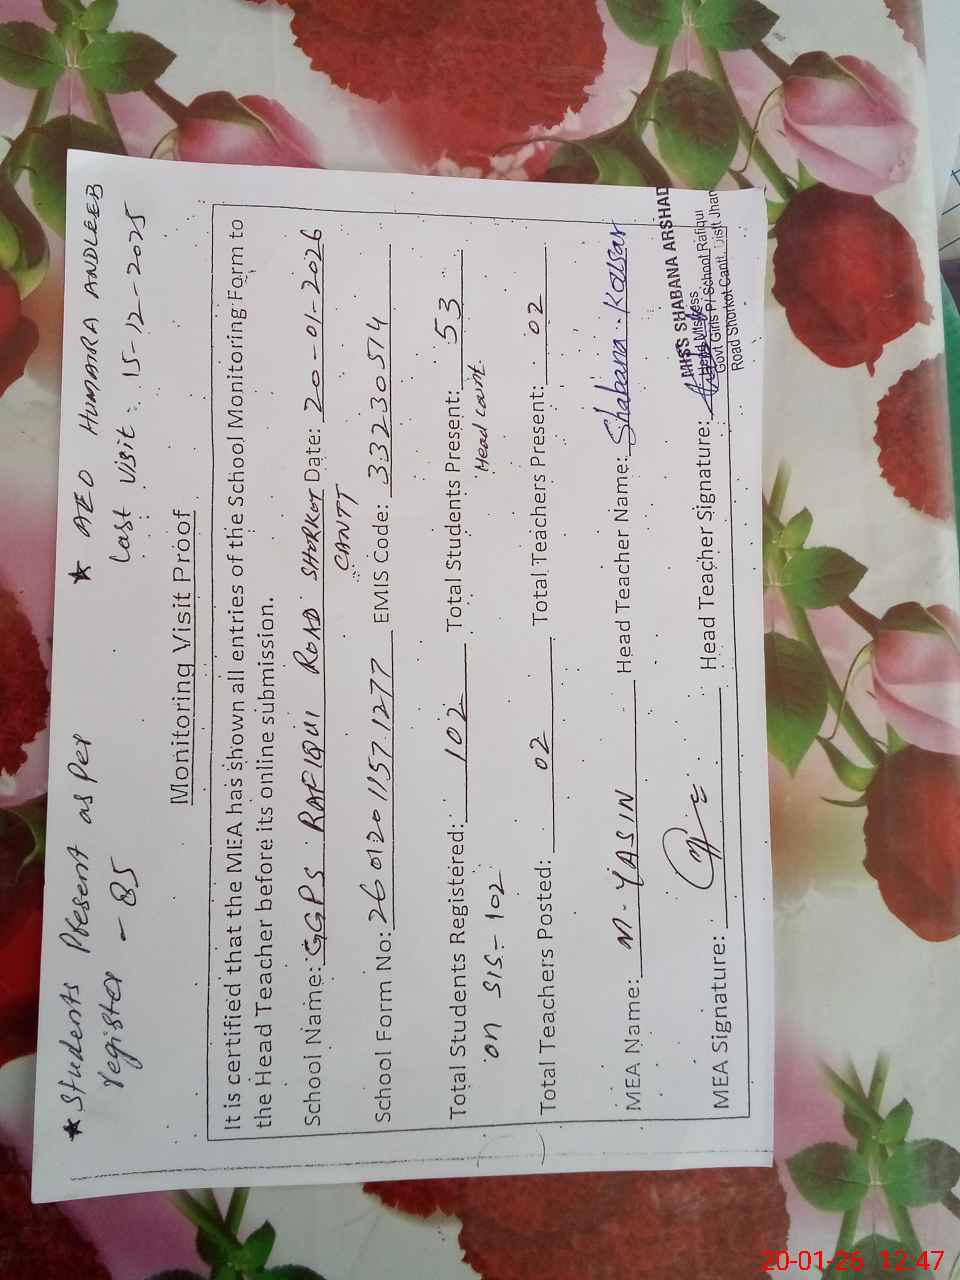 ★ Students Present as per
register - 85
★ AEO HUMAIRA ANDLEEB
Last Visit: 15-12-2025
Monitoring Visit Proof
It is certified that the MEA has shown all entries of the School Monitoring Form to
the Head Teacher before its online submission.
School Name: GGPS RAFIQUI ROAD SHORKOT CANTT Date: 20-01-2026
School Form No: 26012011571277 EMIS Code: 33230514
Total Students Registered: 102 Total Students Present: 53
on SIS = 102 Head count
Total Teachers Posted: 02 Total Teachers Present: 02
MEA Name: M. YASIN Head Teacher Name: Shabana Kousar
MEA Signature: Head Teacher Signature:
MISS SHABANA ARSHAD
Head Mistress
Govt Girls P/ School Rafiqui
Road Shorkot Cantt. Distt Jhan
20-01-26 12:47